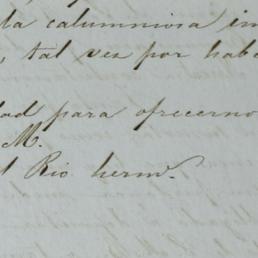 la calumniosa im
, tal vez por habe
dad para ofrecerno
M.
l Rio herm.